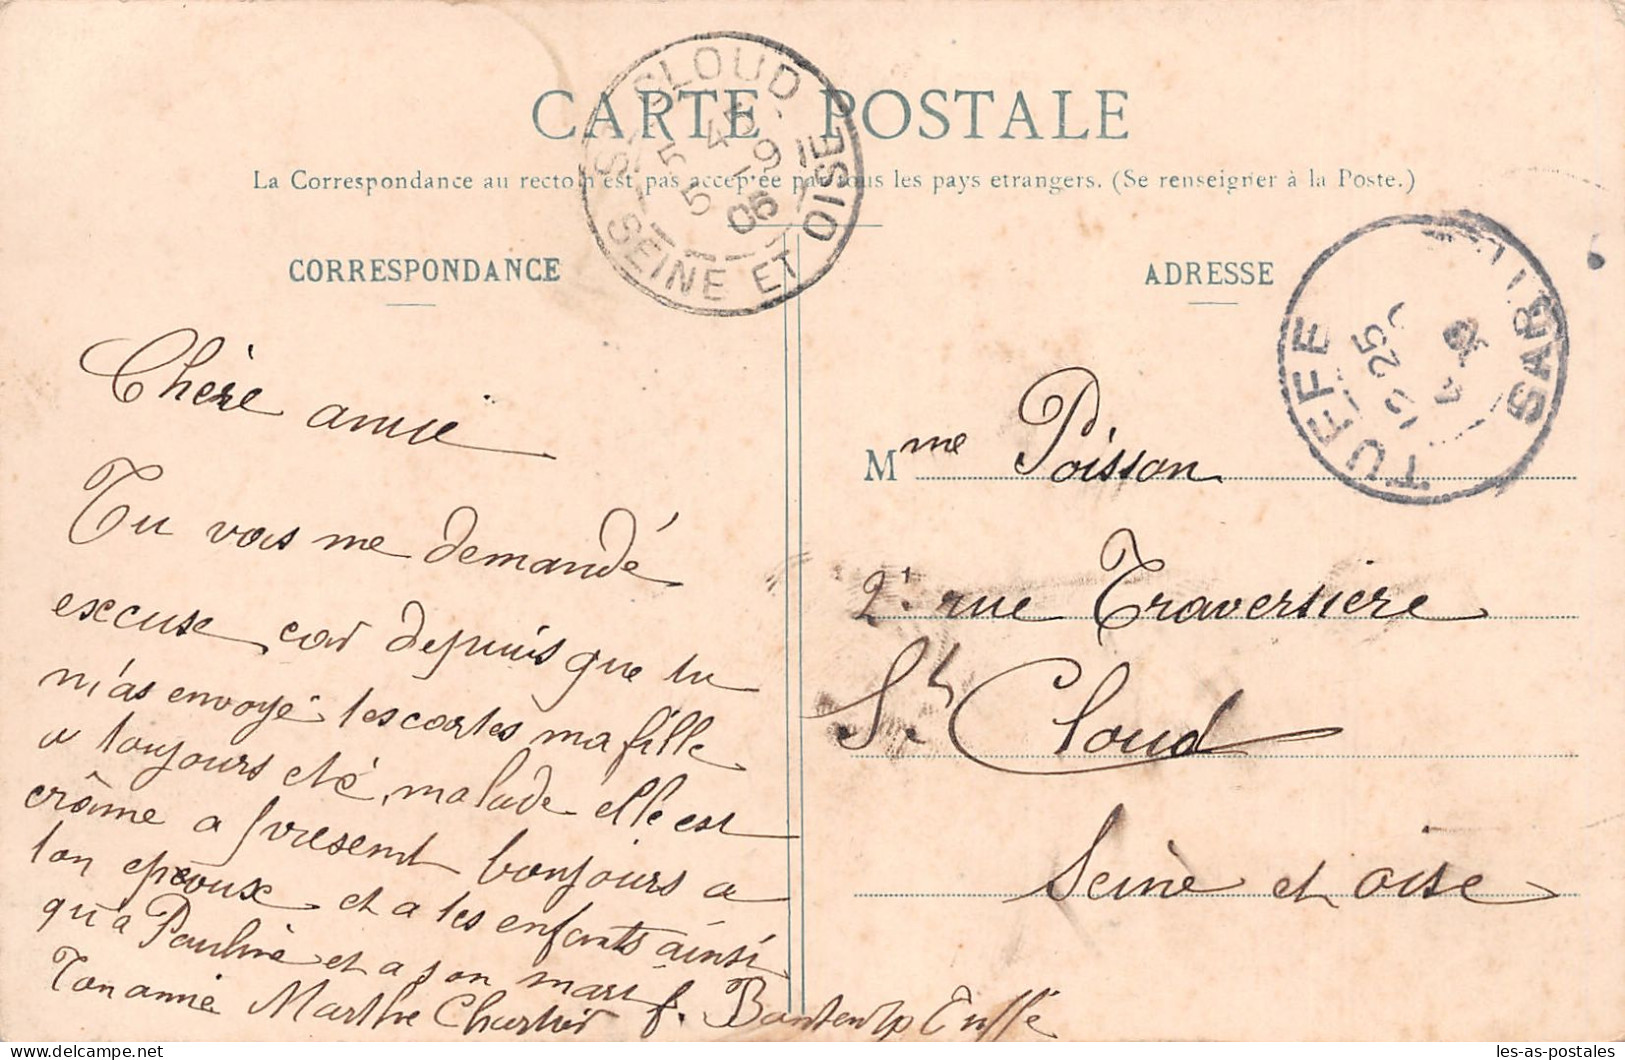 CARTE POSTALE
La Correspondance au recto n'est pas acceptée par tous les pays etrangers. (Se renseigner à la Poste.)
CORRESPONDANCE
Chère amie
Tu vois me demandé
excuse car depuis que tu
m'as envoyé tes cartes ma fille
a toujours été malade elle est
crôme a present bonjours a
ton epoux et a tes enfants ainsi
qu'a Pauline et a son mari
Ton amie Marthe Chartier f. Tuffé
ADRESSE
Mme Poisson
2. rue Traversière
St Cloud
Seine et oise
ST CLOUD
SEINE ET OISE
5 5
4 - 9
05
TUFFE
SARTHE
12 25
4
les-as-postales